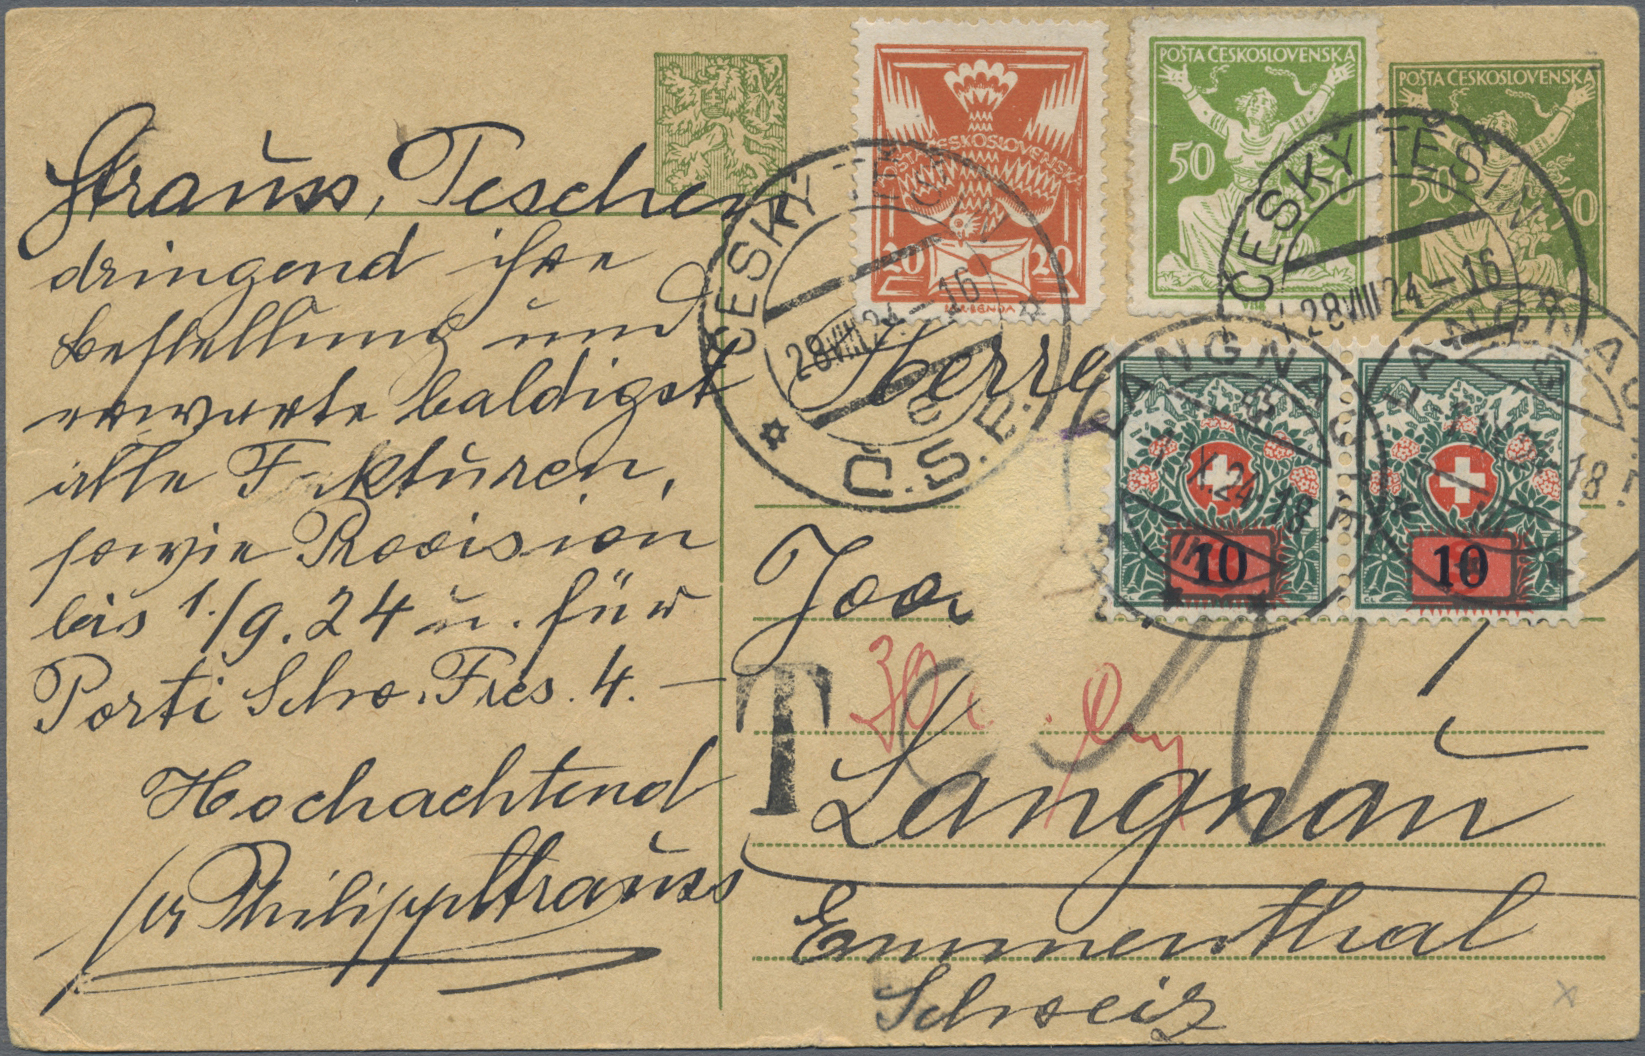 Strauss, Teschen
dringend ihre
bestellung und
erwarte baldigst
alle Fakturen,
sowie Provision
bis 1./9.24 u. für
Porti Schw. Frcs. 4.—
Hochachtend
per Philipp Strauss
ČESKOSLOVENSKÁ
20 20
POŠTA ČESKOSLOVENSKÁ
50
POŠTA ČESKOSLOVENSKÁ
50
ČESKÝ TĚŠÍN
28.VIII.24–16
Č.S.P.
ČESKÝ TĚŠÍN
28.VIII.24–16
LANGNAU
24–18
10
LANGNAU
18
10
Herrn
Joa
T
30
Langnau
Emmenthal
Schweiz
x